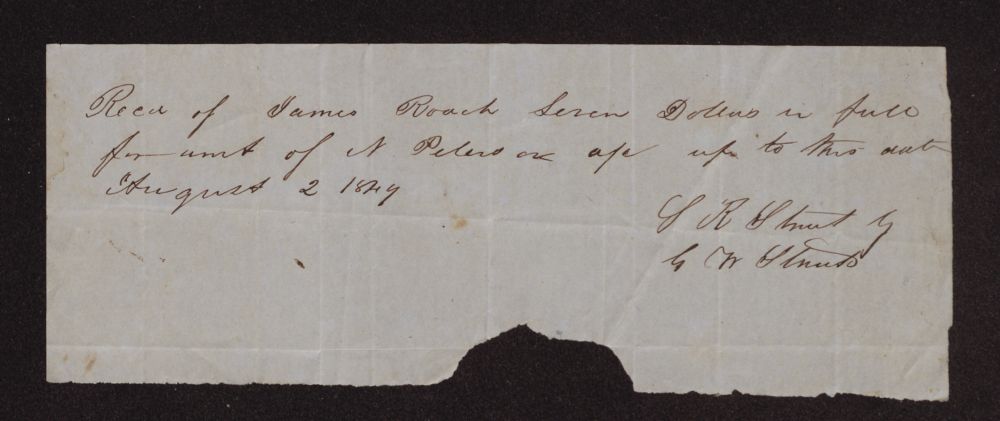 Recd of James Roach Seven Dollars in full
for amt of N Peterson a/c up to this date
August 2 1849
S R Strut by
G W Struts